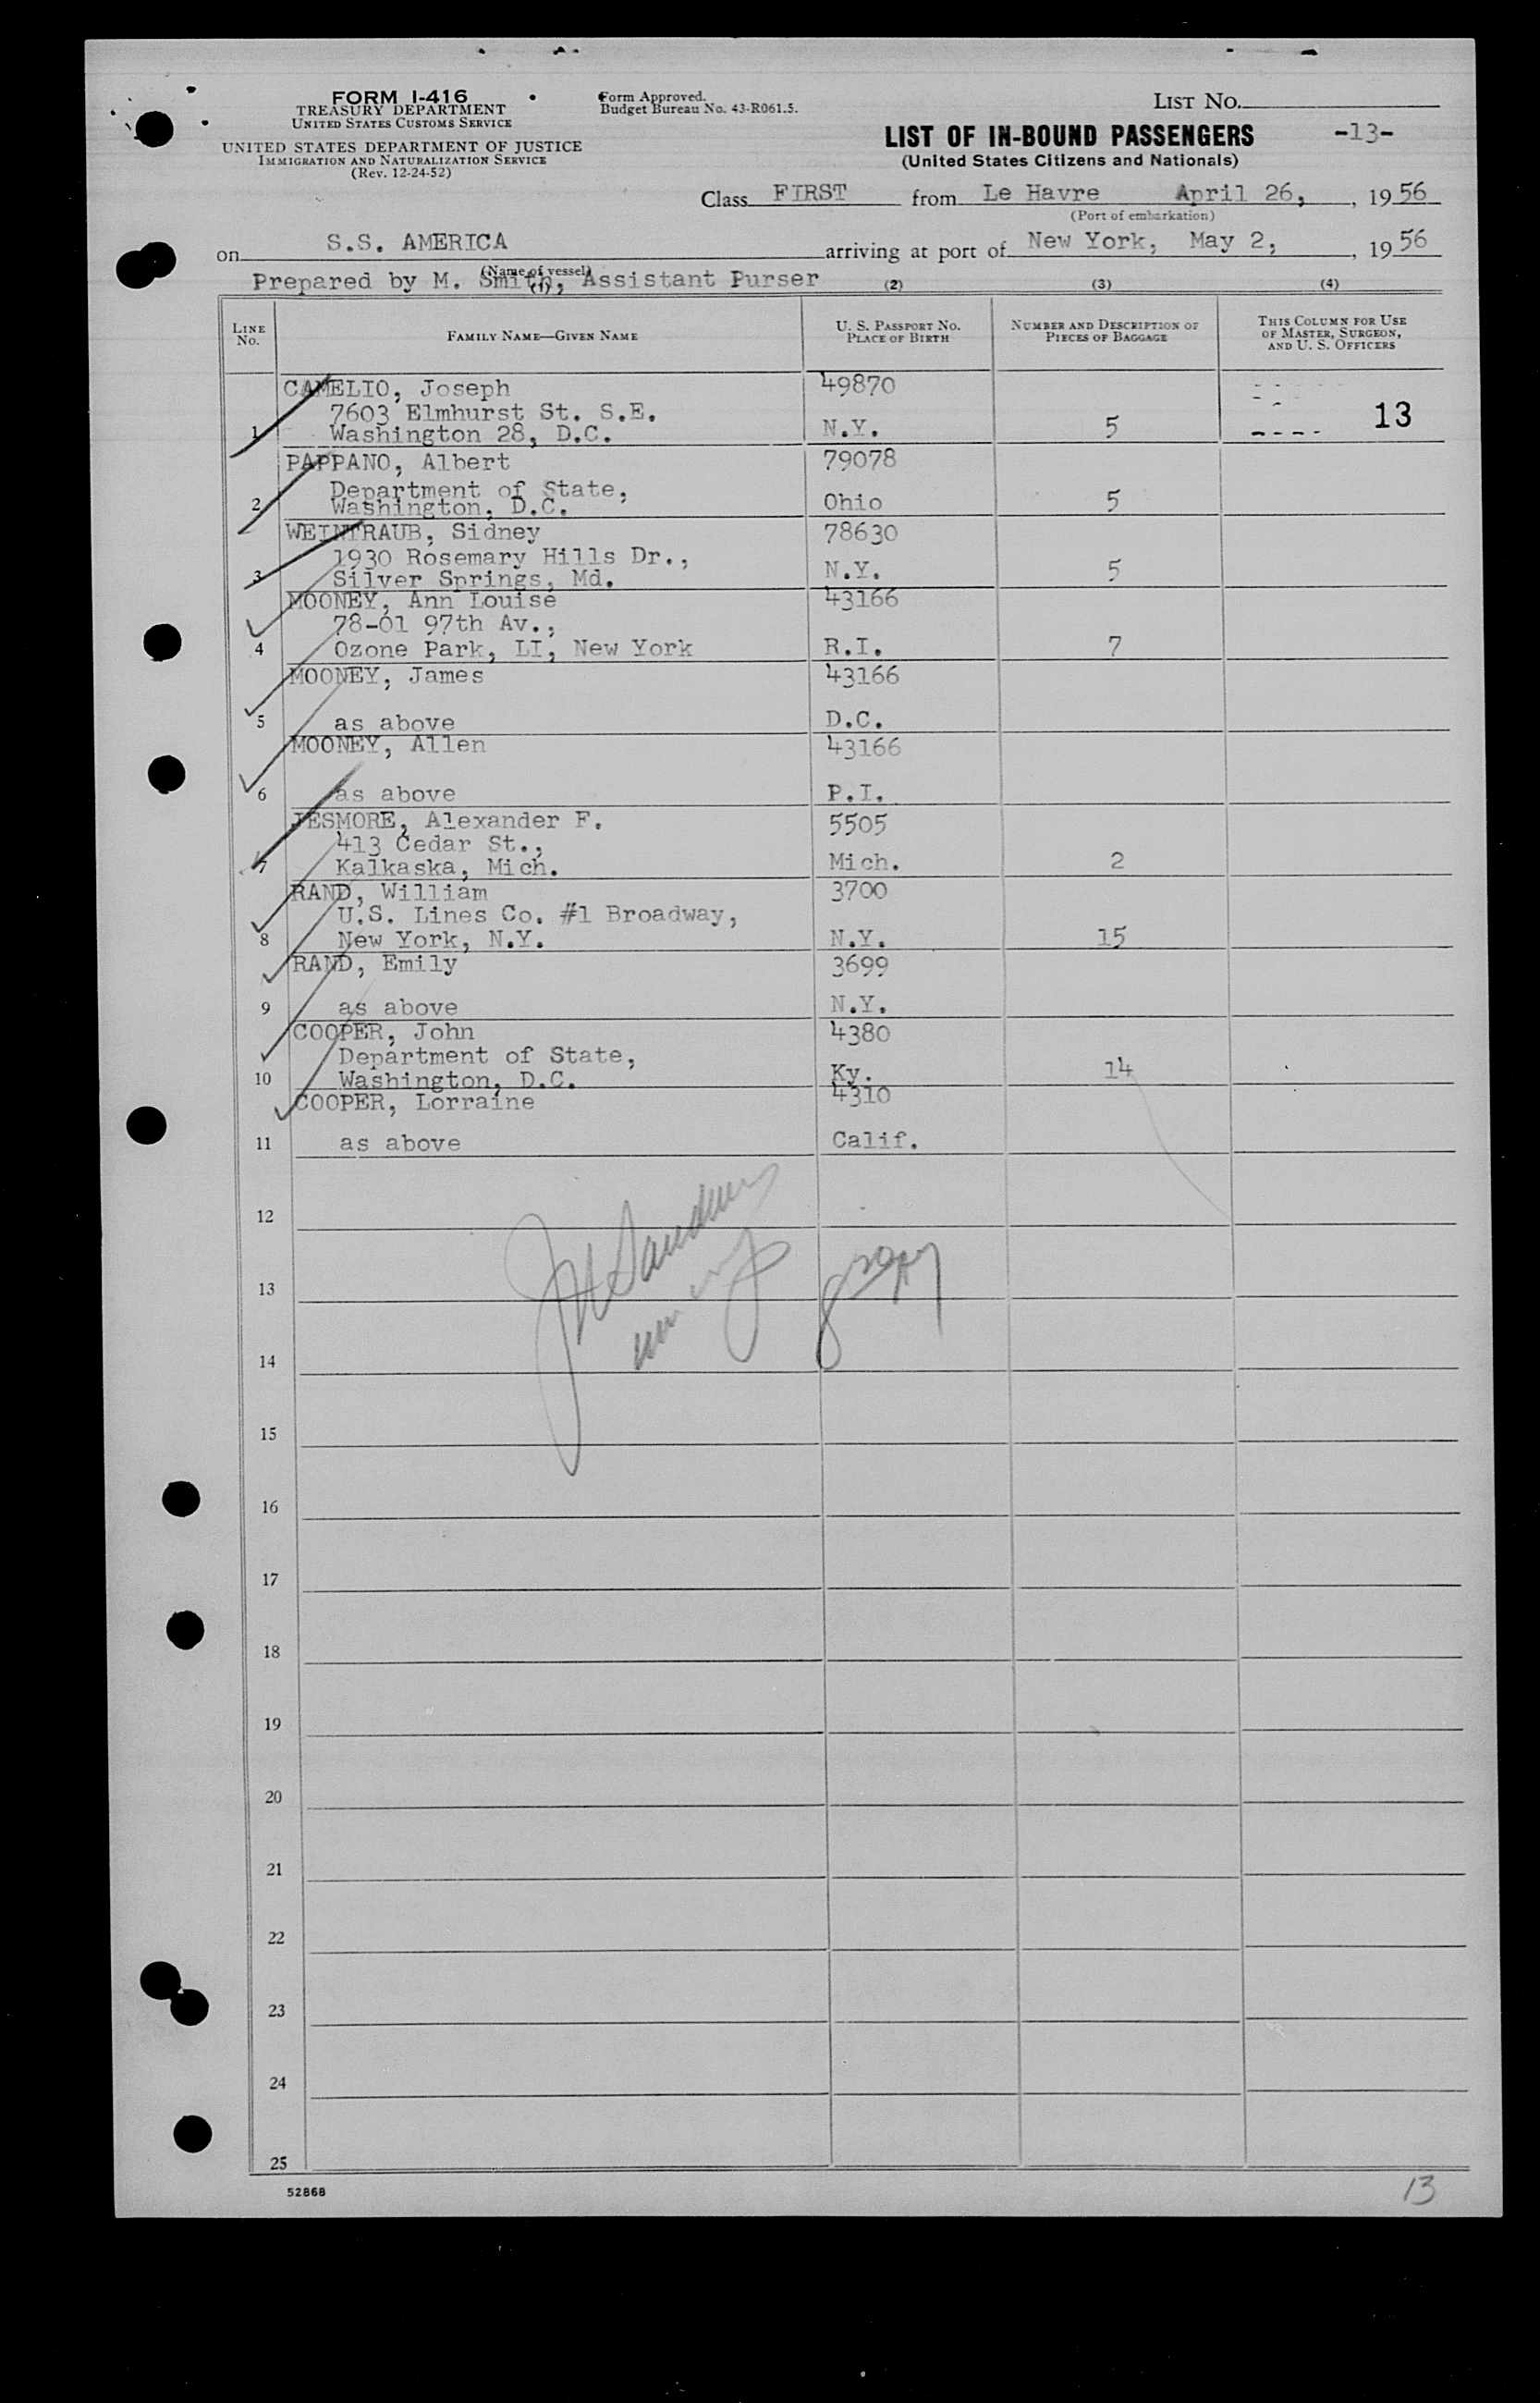 FORM I-416
TREASURY DEPARTMENT
UNITED STATES CUSTOMS SERVICE
UNITED STATES DEPARTMENT OF JUSTICE
IMMIGRATION AND NATURALIZATION SERVICE
(Rev. 12-24-52)
Form Approved.
Budget Bureau No. 43-R061.5.
LIST NO.
LIST OF IN-BOUND PASSENGERS -13-
(United States Citizens and Nationals)
Class FIRST from Le Havre April 26, , 19 56
(Port of embarkation)
on S.S. AMERICA arriving at port of New York, May 2, , 19 56
(Name of vessel)
Prepared by M. Smith, Assistant Purser
(1) (2) (3) (4)
LINE NO. FAMILY NAME—GIVEN NAME U. S. PASSPORT NO. PLACE OF BIRTH NUMBER AND DESCRIPTION OF PIECES OF BAGGAGE THIS COLUMN FOR USE OF MASTER, SURGEON, AND U. S. OFFICERS
CAMELIO, Joseph 49870
7603 Elmhurst St. S.E. 13
1 Washington 28, D.C. N.Y. 5
PAPPANO, Albert 79078
Department of State,
2 Washington, D.C. Ohio 5
WEINTRAUB, Sidney 78630
1930 Rosemary Hills Dr.,
3 Silver Springs, Md. N.Y. 5
MOONEY, Ann Louise 43166
78-01 97th Av.,
4 Ozone Park, LI, New York R.I. 7
MOONEY, James 43166
5 as above D.C.
MOONEY, Allen 43166
6 as above P.I.
JESMORE, Alexander F. 5505
413 Cedar St.,
7 Kalkaska, Mich. Mich. 2
RAND, William 3700
U.S. Lines Co. #1 Broadway,
8 New York, N.Y. N.Y. 15
RAND, Emily 3699
9 as above N.Y.
COOPER, John 4380
Department of State,
10 Washington, D.C. Ky. 14
COOPER, Lorraine 4310
11 as above Calif.
12
13
14
15
16
17
18
19
20
21
22
23
24
25
52868
13